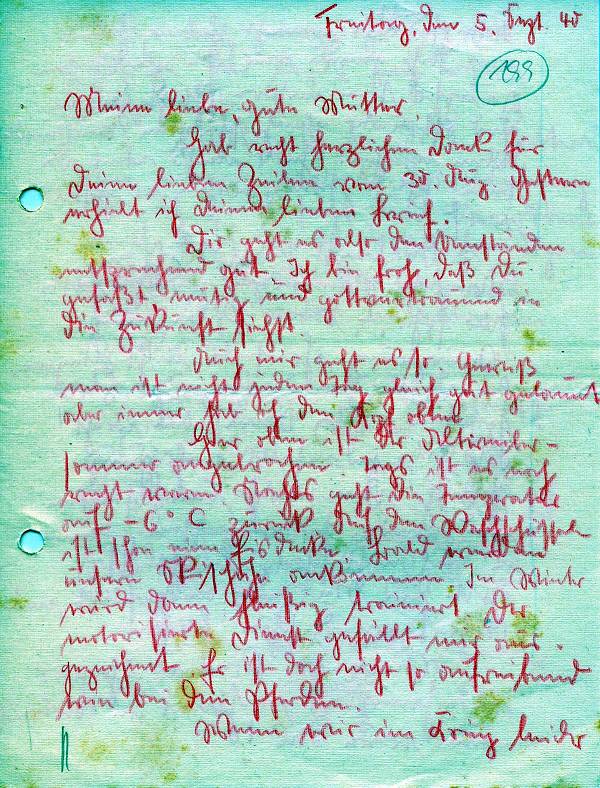 Freitag, den 5. Sept. 40
199
Meine liebe, gute Mutter,
Hab recht herzlichen Dank für
Deine lieben Zeilen vom 30. Aug. Gestern
erhielt ich Deinen lieben Brief.
Dir geht es also den Umständen
entsprechend gut. Ich bin froh, daß Du
gefaßt mutig und gottvertrauend in
die Zukunft siehst.
Auch mir geht es so. Gewiß
man ist nicht jeden Tag gleich gut gelaunt
aber immer hab ich den Kopf oben
Hier oben ist der Altweiber-
sommer angebrochen Tags ist es noch
recht warm Nachts geht die Temperatur
auf -6° C zurück Auf den Waschschüsseln
ist schon eine Eisdecke. Bald werden
unsere Skischuhe ankommen Im Winter
wird dann fleißig trainiert Der
motorisierte Dienst gefällt mir aus-
gezeichnet. Er ist doch nicht so aufreibend
wie bei den Pferden.
Wenn wir im Krieg leider